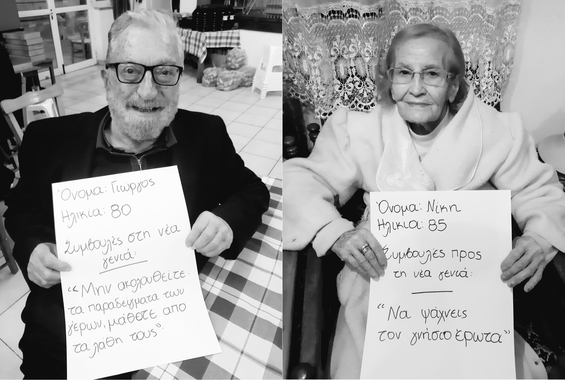 Όνομα: Γιώργος
Ηλικία: 80
Συμβουλές στη νέα
γενιά:
"Μην ακολουθείτε
τα παραδείγματα των
γέρων, μάθετε από
τα λάθη τους".
Όνομα: Νίκη
Ηλικία: 85
Συμβουλές προς
τη νέα γενιά:
"Να ψάχνεις
τον γνήσιο έρωτα"